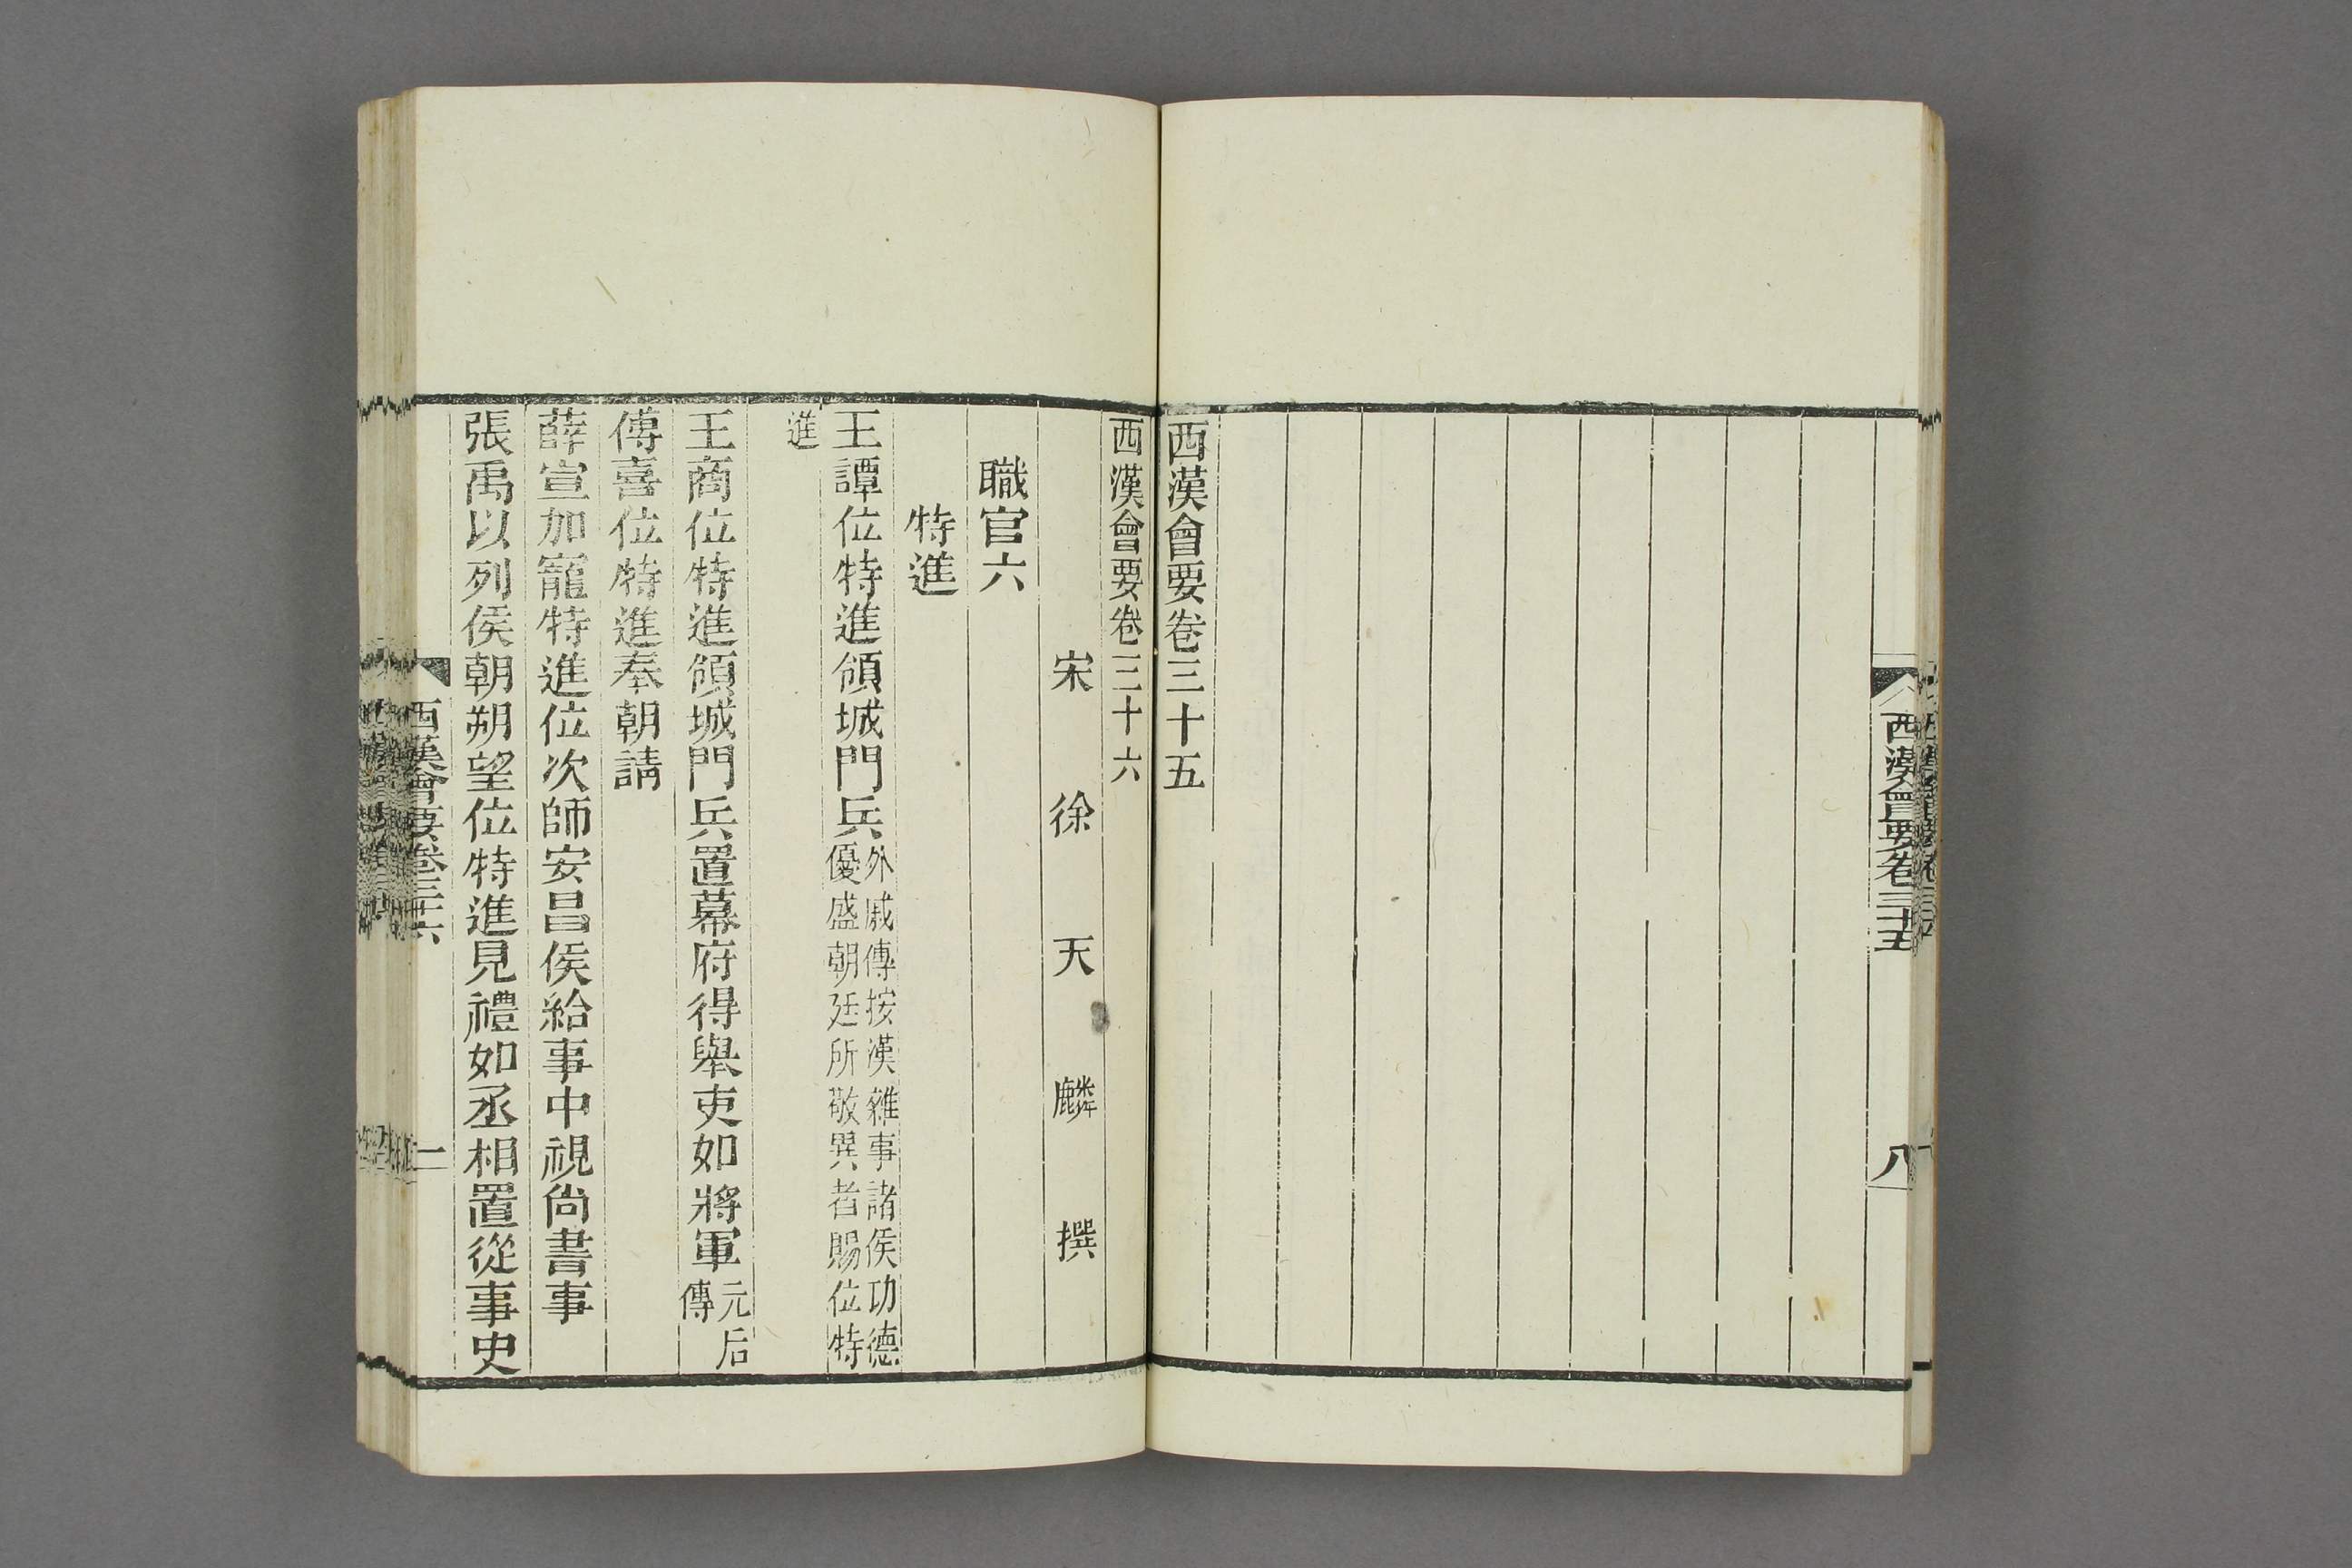 西漢會要卷三十五
八
西漢會要卷三十五
西漢會要卷三十六
宋徐天麟撰
職官六
特進
王譚位特進領城門兵外戚傳按漢雜事諸侯功德
優盛朝廷所敬異者賜位特
進
王商位特進領城門兵置幕府得舉吏如將軍元后
傳
傅喜位特進奉朝請
薛宣加寵特進位次師安昌侯給事中視尚書事
張禹以列侯朝朔望位特進見禮如丞相置從事史
西漢會要卷三十六
一